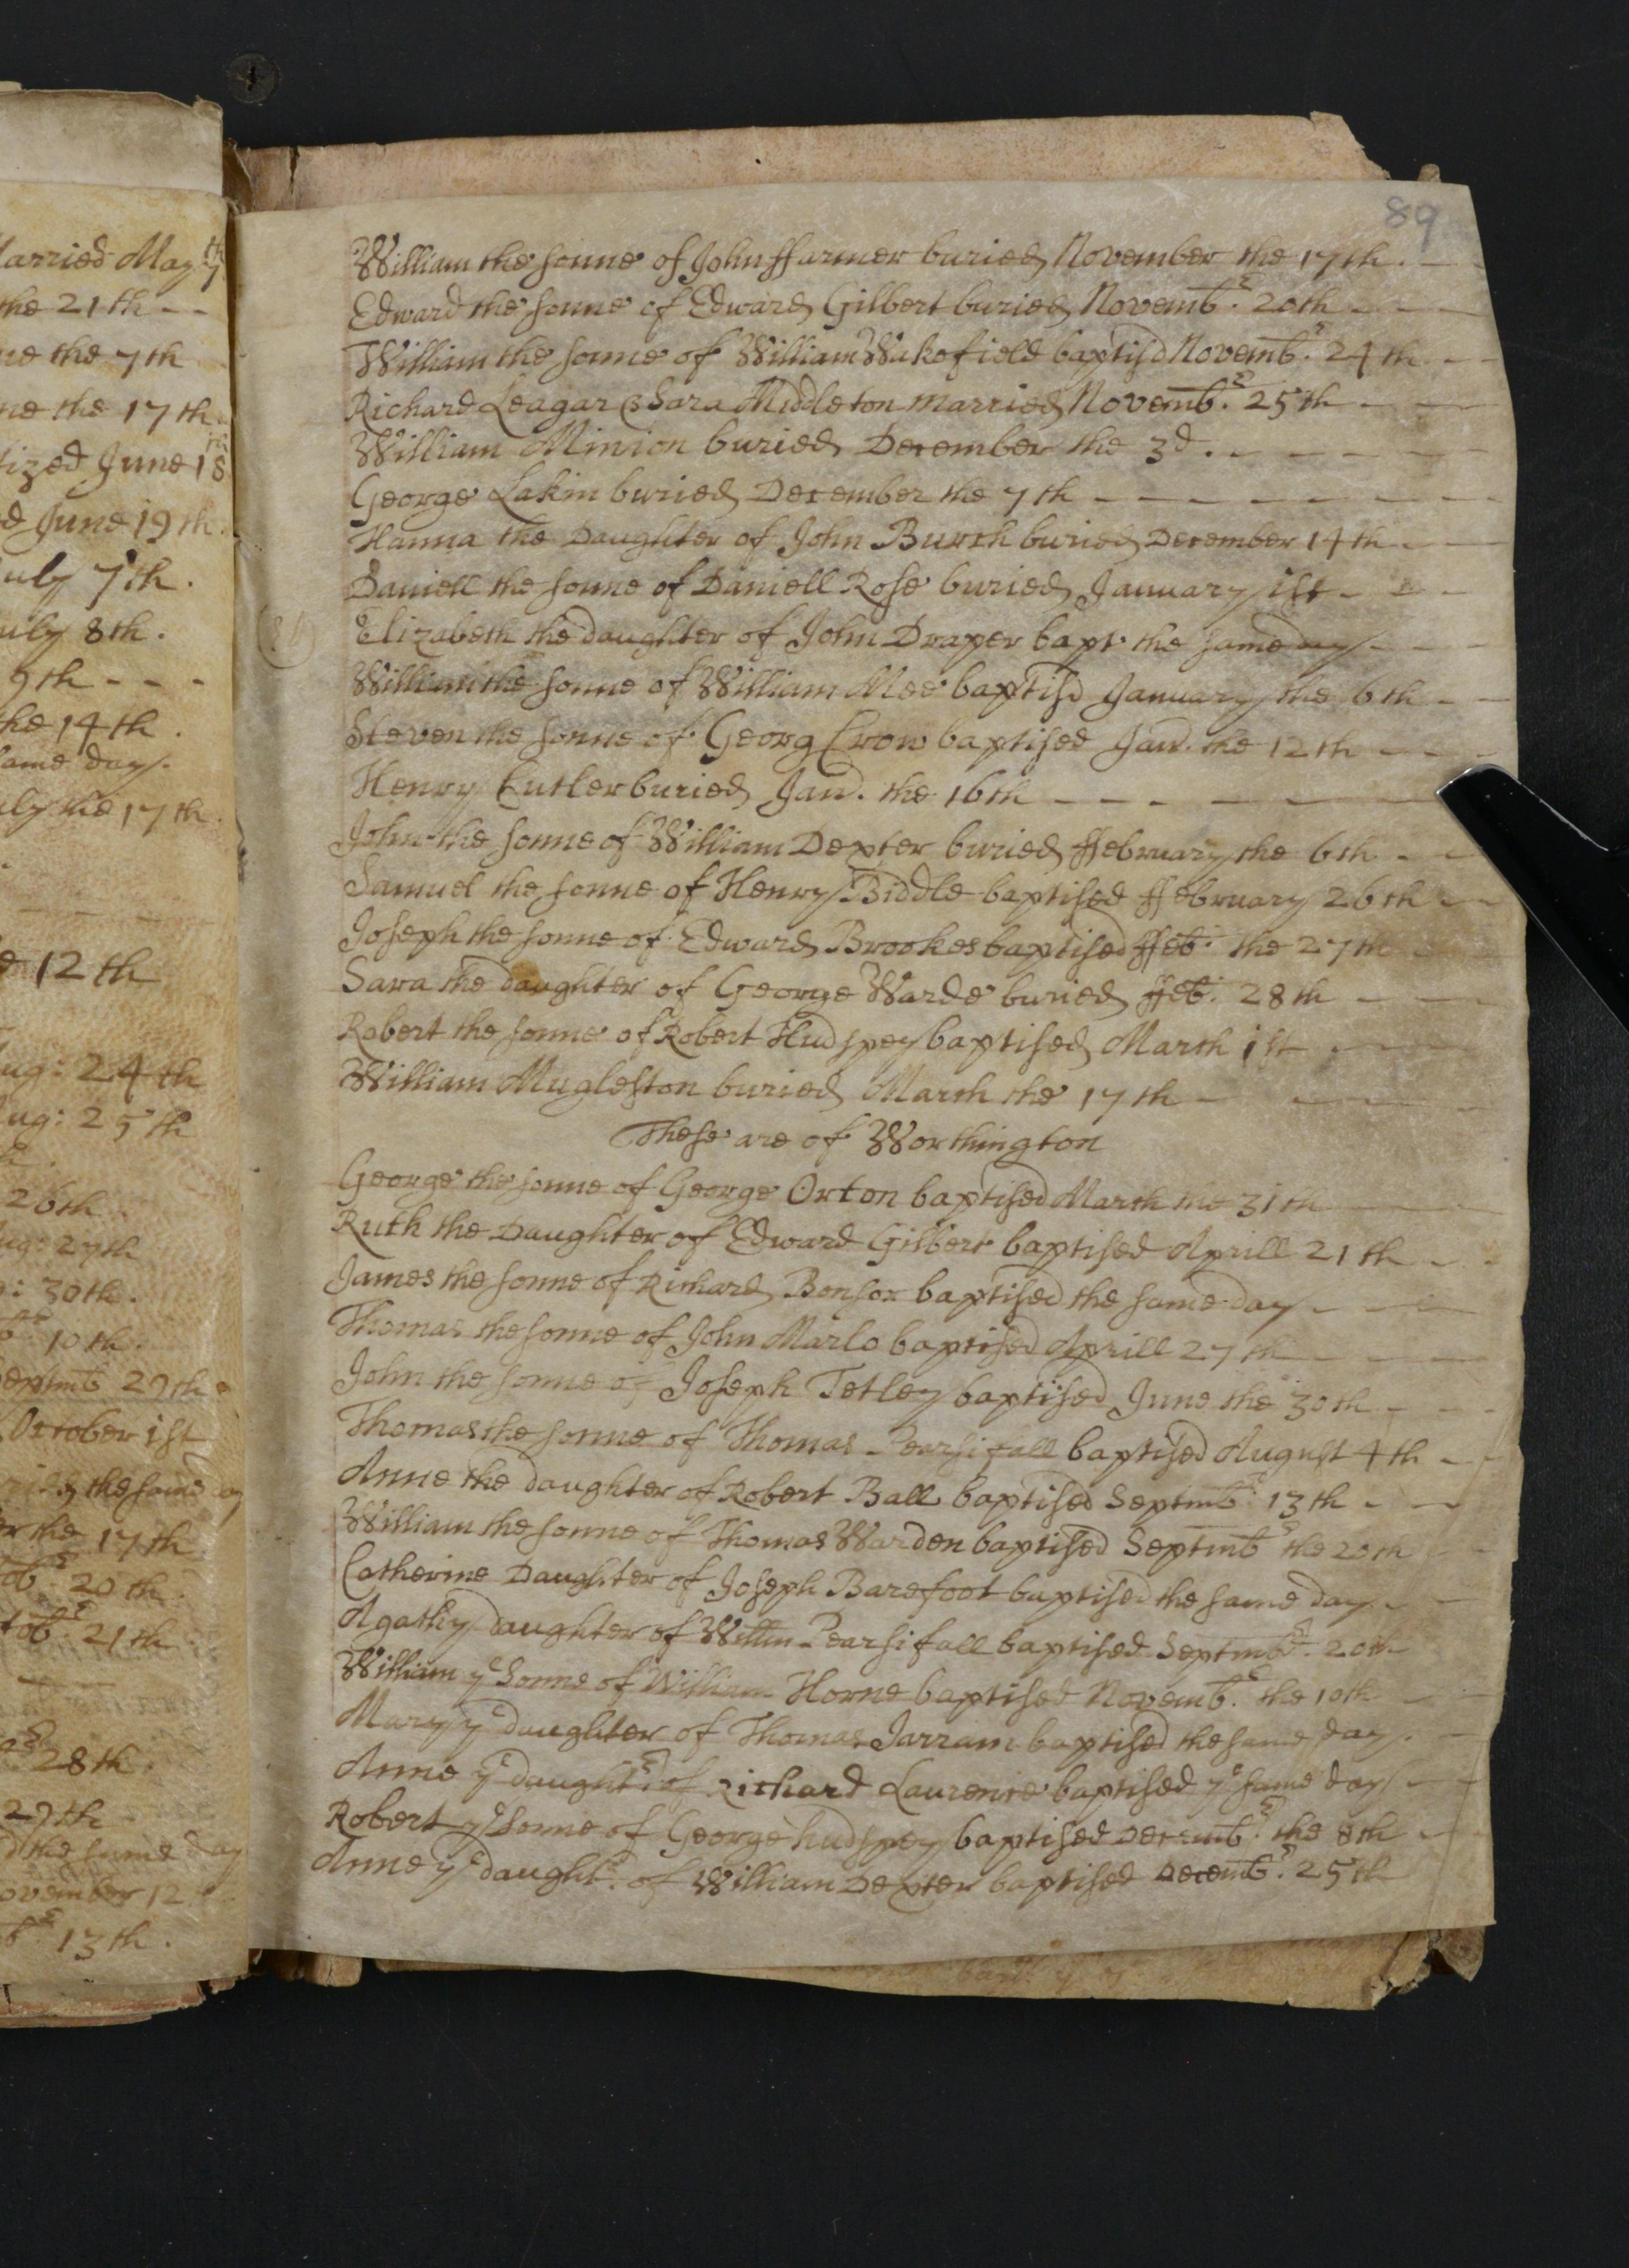 arried May 7th
the 21th
ne the 7th
ne the 17th
tized June 18th
d June 19th.
uly 7th.
uly 8th.
9th
the 14th.
same day.
uly the 17th.
e 12th
ug: 24th
ug: 25th
26th
ug: 27th
: 30th.
10th.
eptmb 29th
October 1st
ried the same day
er the 17th
ob.r 20th.
tob.r 21th
28th.
29th
d the same day
ovember 12.
b.r 13th.
89
William the sonne of John ffarmer buried November the 17th.
Edward the sonne of Edward Gilbert buried Novemb.r 20th
William the sonne of William Wakefield baptisd Novemb.r 24th
Richard Leagar & Sara Middleton married Novemb.r 25th
William Minion buried December the 3d.
George Lakin buried December the 7th
Hanna the Daughter of John Burch buried December 14th
Daniell the sonne of Daniell Rose buried January 1st
Elizabeth the daughter of John Draper bapt. the same day
William the sonne of William Mee baptisd January the 6th
Steven the sonne of Georg Crow baptised Jan. the 12th
Henry Cutler buried Jan. the 16th
John the sonne of William Dexter buried ffebruary the 6th
Samuel the sonne of Henry Biddle baptised ffebruary 26th
Joseph the sonne of Edward Brookes baptised ffeb. the 27th
Sara the daughter of George Warde buried ffeb. 28th
Robert the sonne of Robert Hudspey baptised March 1st
William Mugleston buried March the 17th
These are of Worthington
George the sonne of George Orton baptised March the 31th
Ruth the Daughter of Edward Gilbert baptised Aprill 21th
James the sonne of Richard Bonsor baptised the same day
Thomas the sonne of John Marlo baptised Aprill 27th
John the sonne of Joseph Tetley baptised June the 30th
Thomas the sonne of Thomas Pearsifall baptised August 4th
Anne the daughter of Robert Ball baptised Septmb.r 13th
William the sonne of Thomas Warden baptised Septmb.r the 20th
Catherine Daughter of Joseph Barefoot baptised the same day
Agathy daughter of Willm Pearsifall baptised Septmb.r 20th
William ye Sonne of William Horne baptised Novemb.r the 10th
Mary ye daughter of Thomas Jarram baptised the same day.
Anne ye daughtr. of Richard Laurence baptised ye same day
Robert ye Sonne of George hudspey baptised Decemb.r the 8th
Anne ye daughtr. of William Dexter baptised Decemb.r 25th